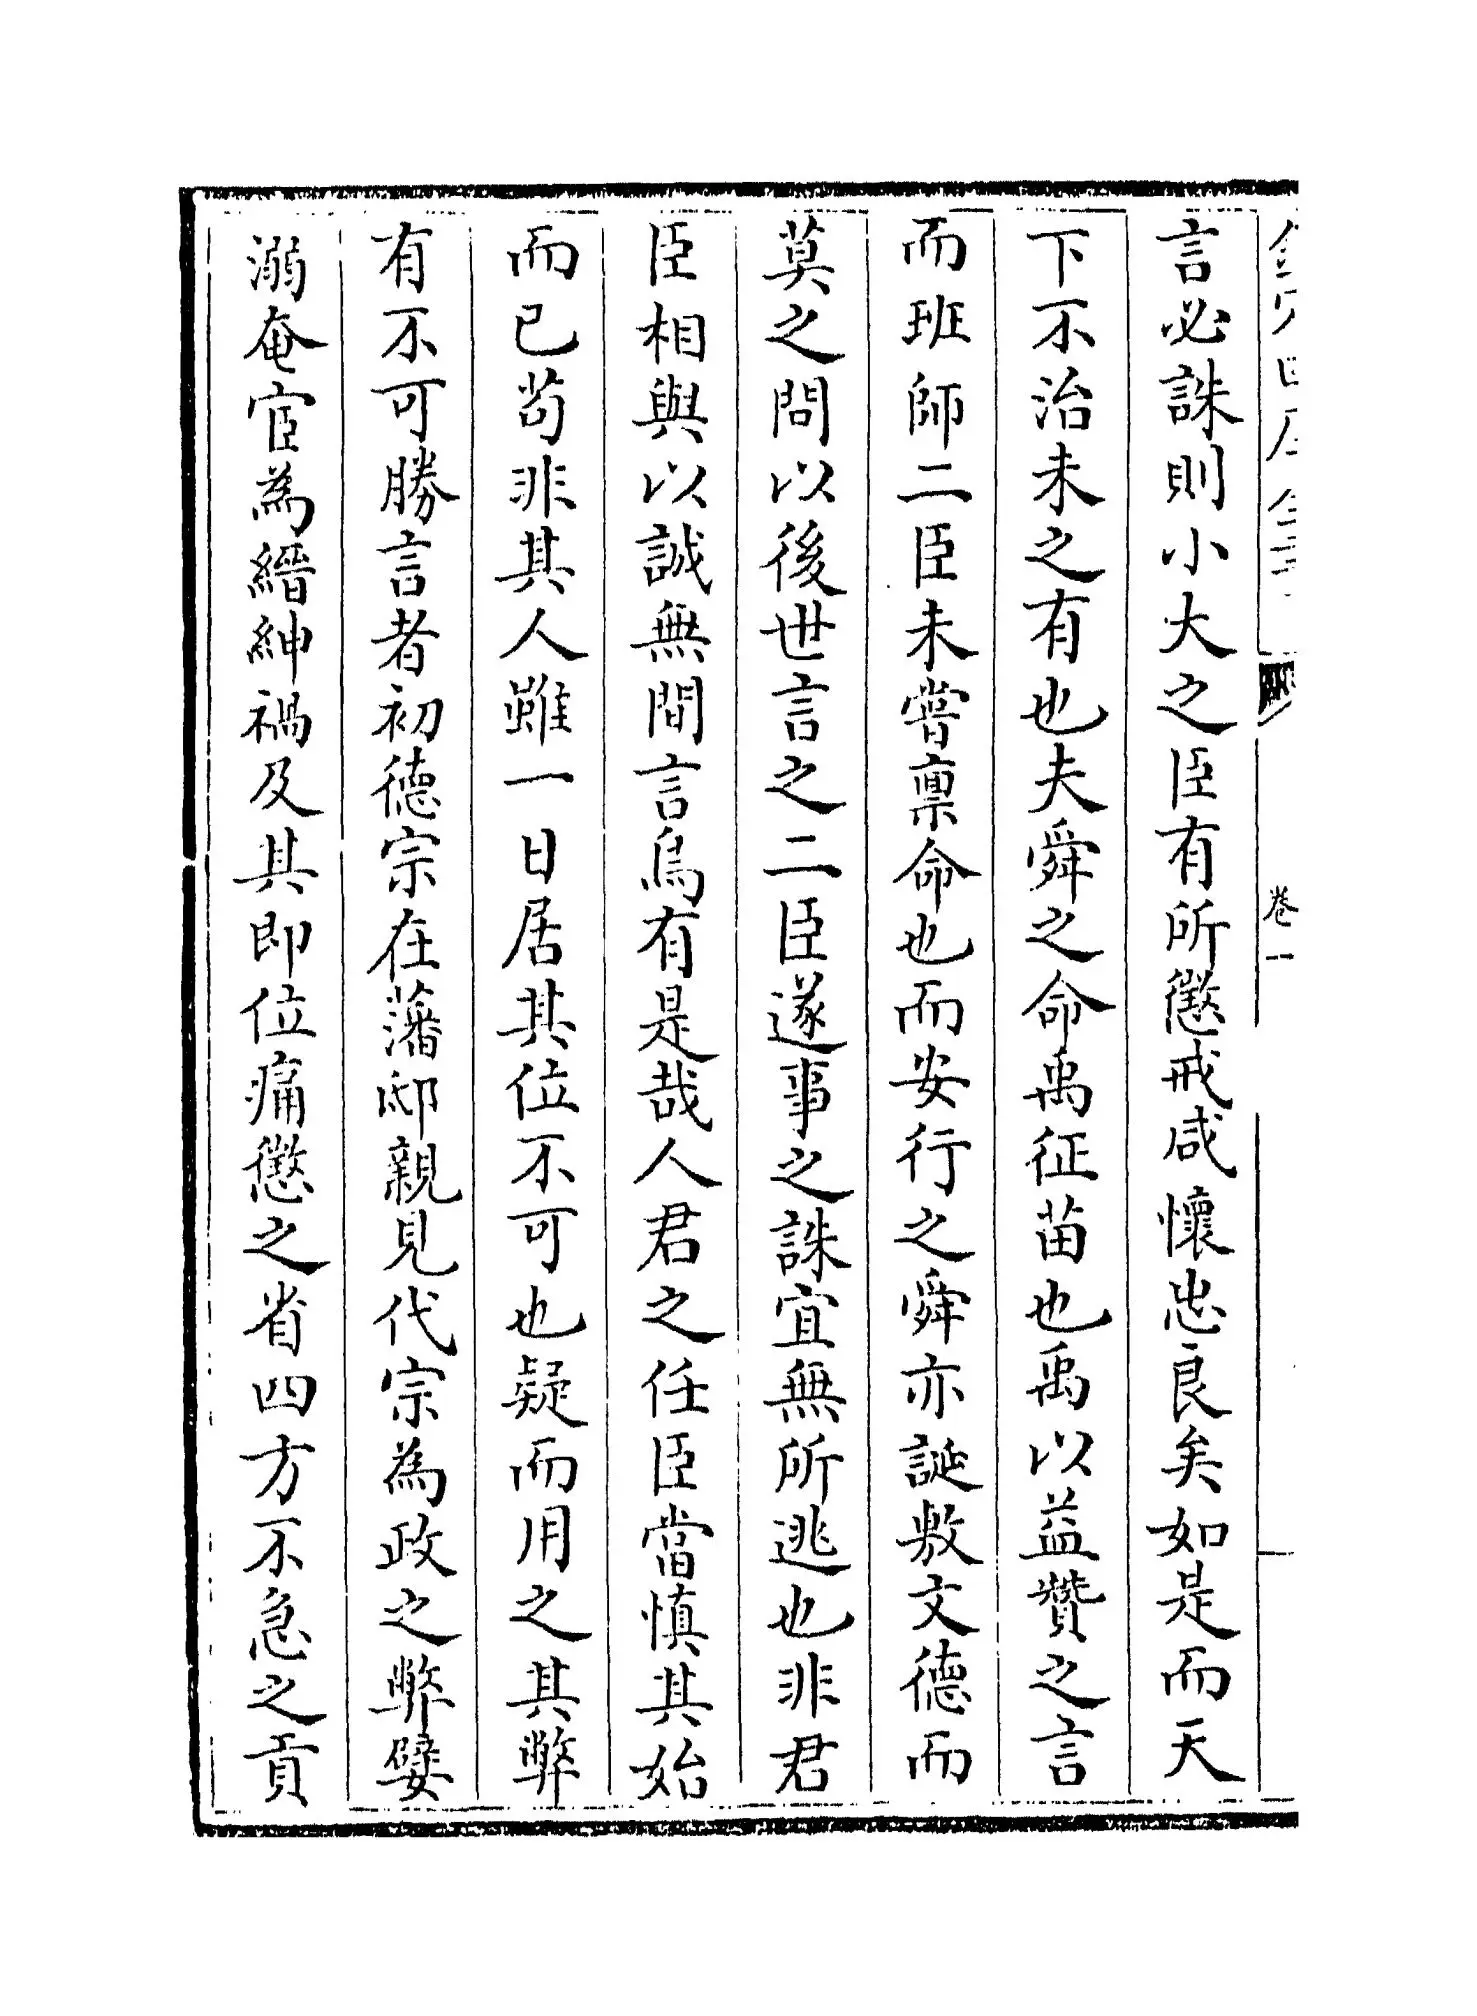 言必誅則小大之臣有所懲戒咸懷忠良矣如是而天
下不治未之有也夫舜之命禹征苗也禹以益贊之言
而班師二臣未嘗禀命也而安行之舜亦誕敷文德而
莫之問以後世言之二臣遂事之誅宜無所逃也非君
臣相與以誠無間言烏有是哉人君之任臣當慎其始
而已苟非其人雖一日居其位不可也疑而用之其弊
有不可勝言者初德宗在藩邸親見代宗為政之弊嬖
溺奄宦為縉紳禍及其即位痛懲之省四方不急之貢
卷一